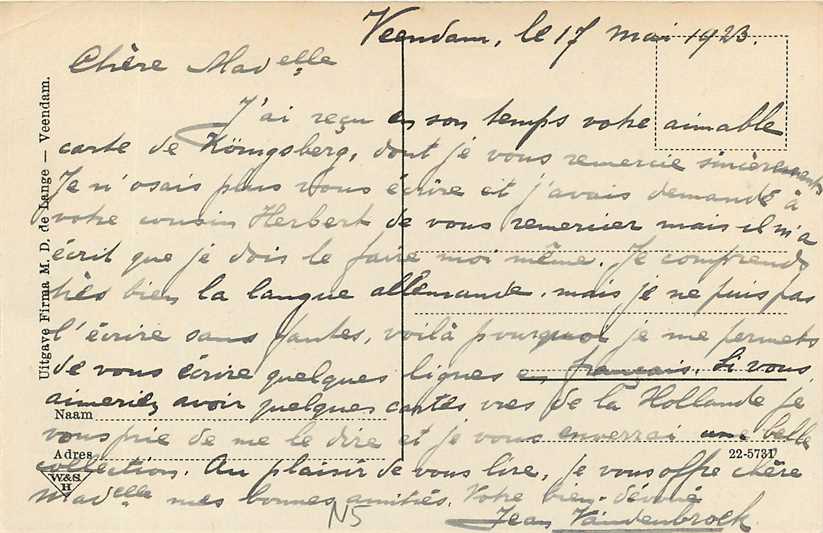 Veendam, le 17 mai 1923.
Chère Madelle
J'ai reçu en son temps votre aimable
carte de Königsberg, dont je vous remercie sincèrement
Je n'osais plus vous écrire et j'avais demandé à
votre cousin Herbert de vous remercier mais il m'a
écrit que je dois le faire moi même. Je comprends
très bien la langue allemande, mais je ne puis pas
l'écrire sans fautes, voilà pourquoi je me permets
de vous écrire quelques lignes en français. Si vous
aimeriez avoir quelques cartes vues de la Hollande je
vous prie de me le dire et je vous enverrai une belle
collection. Au plaisir de vous lire, je vous offre chère
Madelle mes bonnes amitiés. Votre bien dévoué
Jean Vandenbroek
N5
Uitgave Firma M. D. de Lange — Veendam.
Naam
Adres
W.&S.
H
22-5731